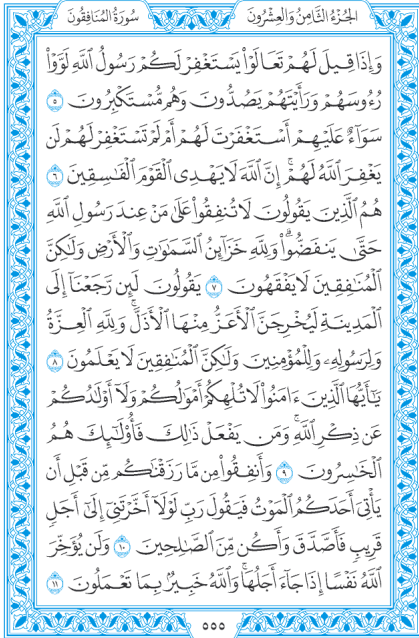 الجُزْءُ الثَّامِنُ وَالعِشْرُونَ
سُورَةُ المُنَافِقُونَ
وَإِذَا قِيلَ لَهُمْ تَعَالَوْا۟ يَسْتَغْفِرْ لَكُمْ رَسُولُ ٱللَّهِ لَوَّوْا۟
رُءُوسَهُمْ وَرَأَيْتَهُمْ يَصُدُّونَ وَهُم مُّسْتَكْبِرُونَ ٥
سَوَآءٌ عَلَيْهِمْ أَسْتَغْفَرْتَ لَهُمْ أَمْ لَمْ تَسْتَغْفِرْ لَهُمْ لَن
يَغْفِرَ ٱللَّهُ لَهُمْۚ إِنَّ ٱللَّهَ لَا يَهْدِى ٱلْقَوْمَ ٱلْفَـٰسِقِينَ ٦
هُمُ ٱلَّذِينَ يَقُولُونَ لَا تُنفِقُوا۟ عَلَىٰ مَنْ عِندَ رَسُولِ ٱللَّهِ
حَتَّىٰ يَنفَضُّوا۟ۗ وَلِلَّهِ خَزَآئِنُ ٱلسَّمَـٰوَٰتِ وَٱلْأَرْضِ وَلَـٰكِنَّ
ٱلْمُنَـٰفِقِينَ لَا يَفْقَهُونَ ٧ يَقُولُونَ لَئِن رَّجَعْنَآ إِلَى
ٱلْمَدِينَةِ لَيُخْرِجَنَّ ٱلْأَعَزُّ مِنْهَا ٱلْأَذَلَّۚ وَلِلَّهِ ٱلْعِزَّةُ
وَلِرَسُولِهِۦ وَلِلْمُؤْمِنِينَ وَلَـٰكِنَّ ٱلْمُنَـٰفِقِينَ لَا يَعْلَمُونَ ٨
يَـٰٓأَيُّهَا ٱلَّذِينَ ءَامَنُوا۟ لَا تُلْهِكُمْ أَمْوَٰلُكُمْ وَلَآ أَوْلَـٰدُكُمْ
عَن ذِكْرِ ٱللَّهِۚ وَمَن يَفْعَلْ ذَٰلِكَ فَأُو۟لَـٰٓئِكَ هُمُ
ٱلْخَـٰسِرُونَ ٩ وَأَنفِقُوا۟ مِن مَّا رَزَقْنَـٰكُم مِّن قَبْلِ أَن
يَأْتِىَ أَحَدَكُمُ ٱلْمَوْتُ فَيَقُولَ رَبِّ لَوْلَآ أَخَّرْتَنِىٓ إِلَىٰٓ أَجَلٍ
قَرِيبٍ فَأَصَّدَّقَ وَأَكُن مِّنَ ٱلصَّـٰلِحِينَ ١٠ وَلَن يُؤَخِّرَ
ٱللَّهُ نَفْسًا إِذَا جَآءَ أَجَلُهَاۚ وَٱللَّهُ خَبِيرٌۢ بِمَا تَعْمَلُونَ ١١
٥٥٥